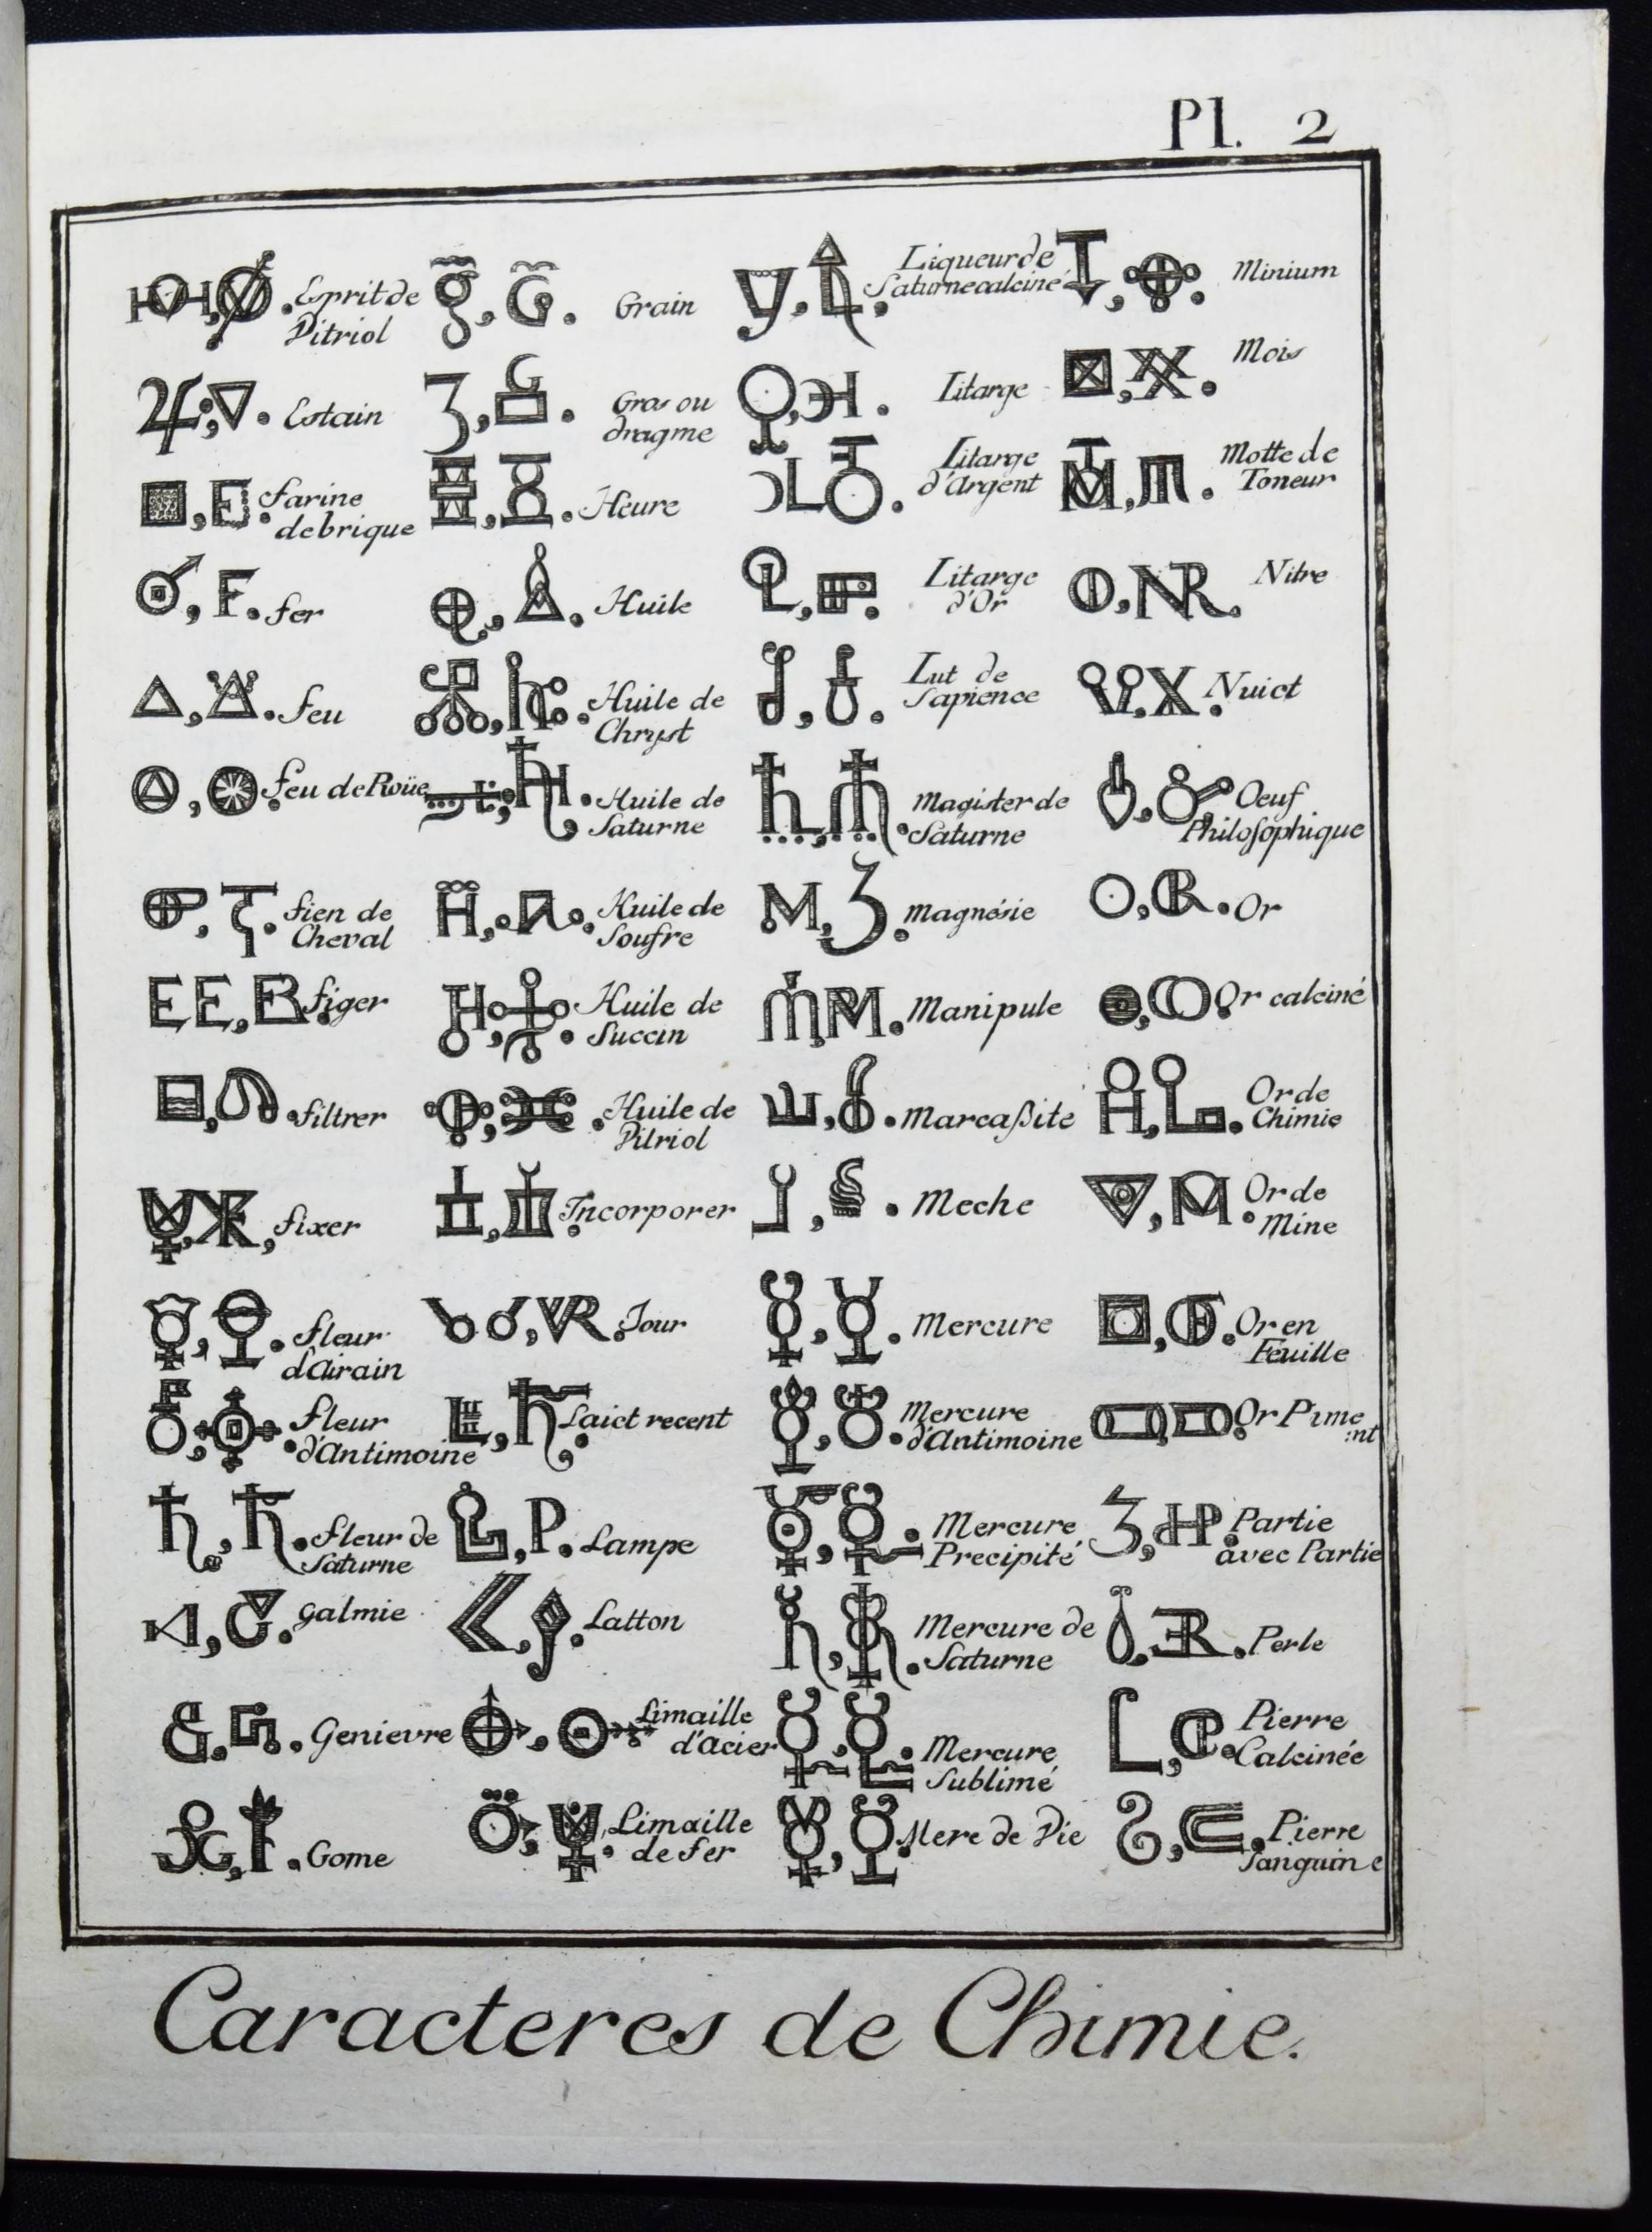 Pl. 2
Esprit de
Vitriol
Estain
farine
de brique
fer
feu
feu de Roüe
fien de
Cheval
figer
filtrer
fixer
fleur
d'airain
fleur
d'Antimoine
fleur de
Saturne
galmie
Genievre
Gome
Grain
Gros ou
dragme
Heure
Huile
Huile de
Chryst
Huile de
Saturne
Huile de
Soufre
Huile de
Succin
Huile de
Vitriol
Incorporer
Jour
Laict recent
Lampe
Latton
Limaille
d'acier
Limaille
de fer
Liqueur de
Saturne calciné
Litarge
Litarge
d'Argent
Litarge
d'Or
Lut de
Sapience
Magister de
Saturne
Magnésie
Manipule
Marcaßite
Meche
Mercure
Mercure
d'Antimoine
Mercure
Precipité
Mercure de
Saturne
Mercure
Sublimé
Mere de Vie
Minium
Mois
Motte de
Toneur
Nitre
Nuict
Oeuf
Philosophique
Or
Or calciné
Or de
Chimie
Or de
Mine
Or en
Feuille
Or Pime
:nt
Partie
avec Partie
Perle
Pierre
Calcinée
Pierre
Sanguine
Caracteres de Chimie.